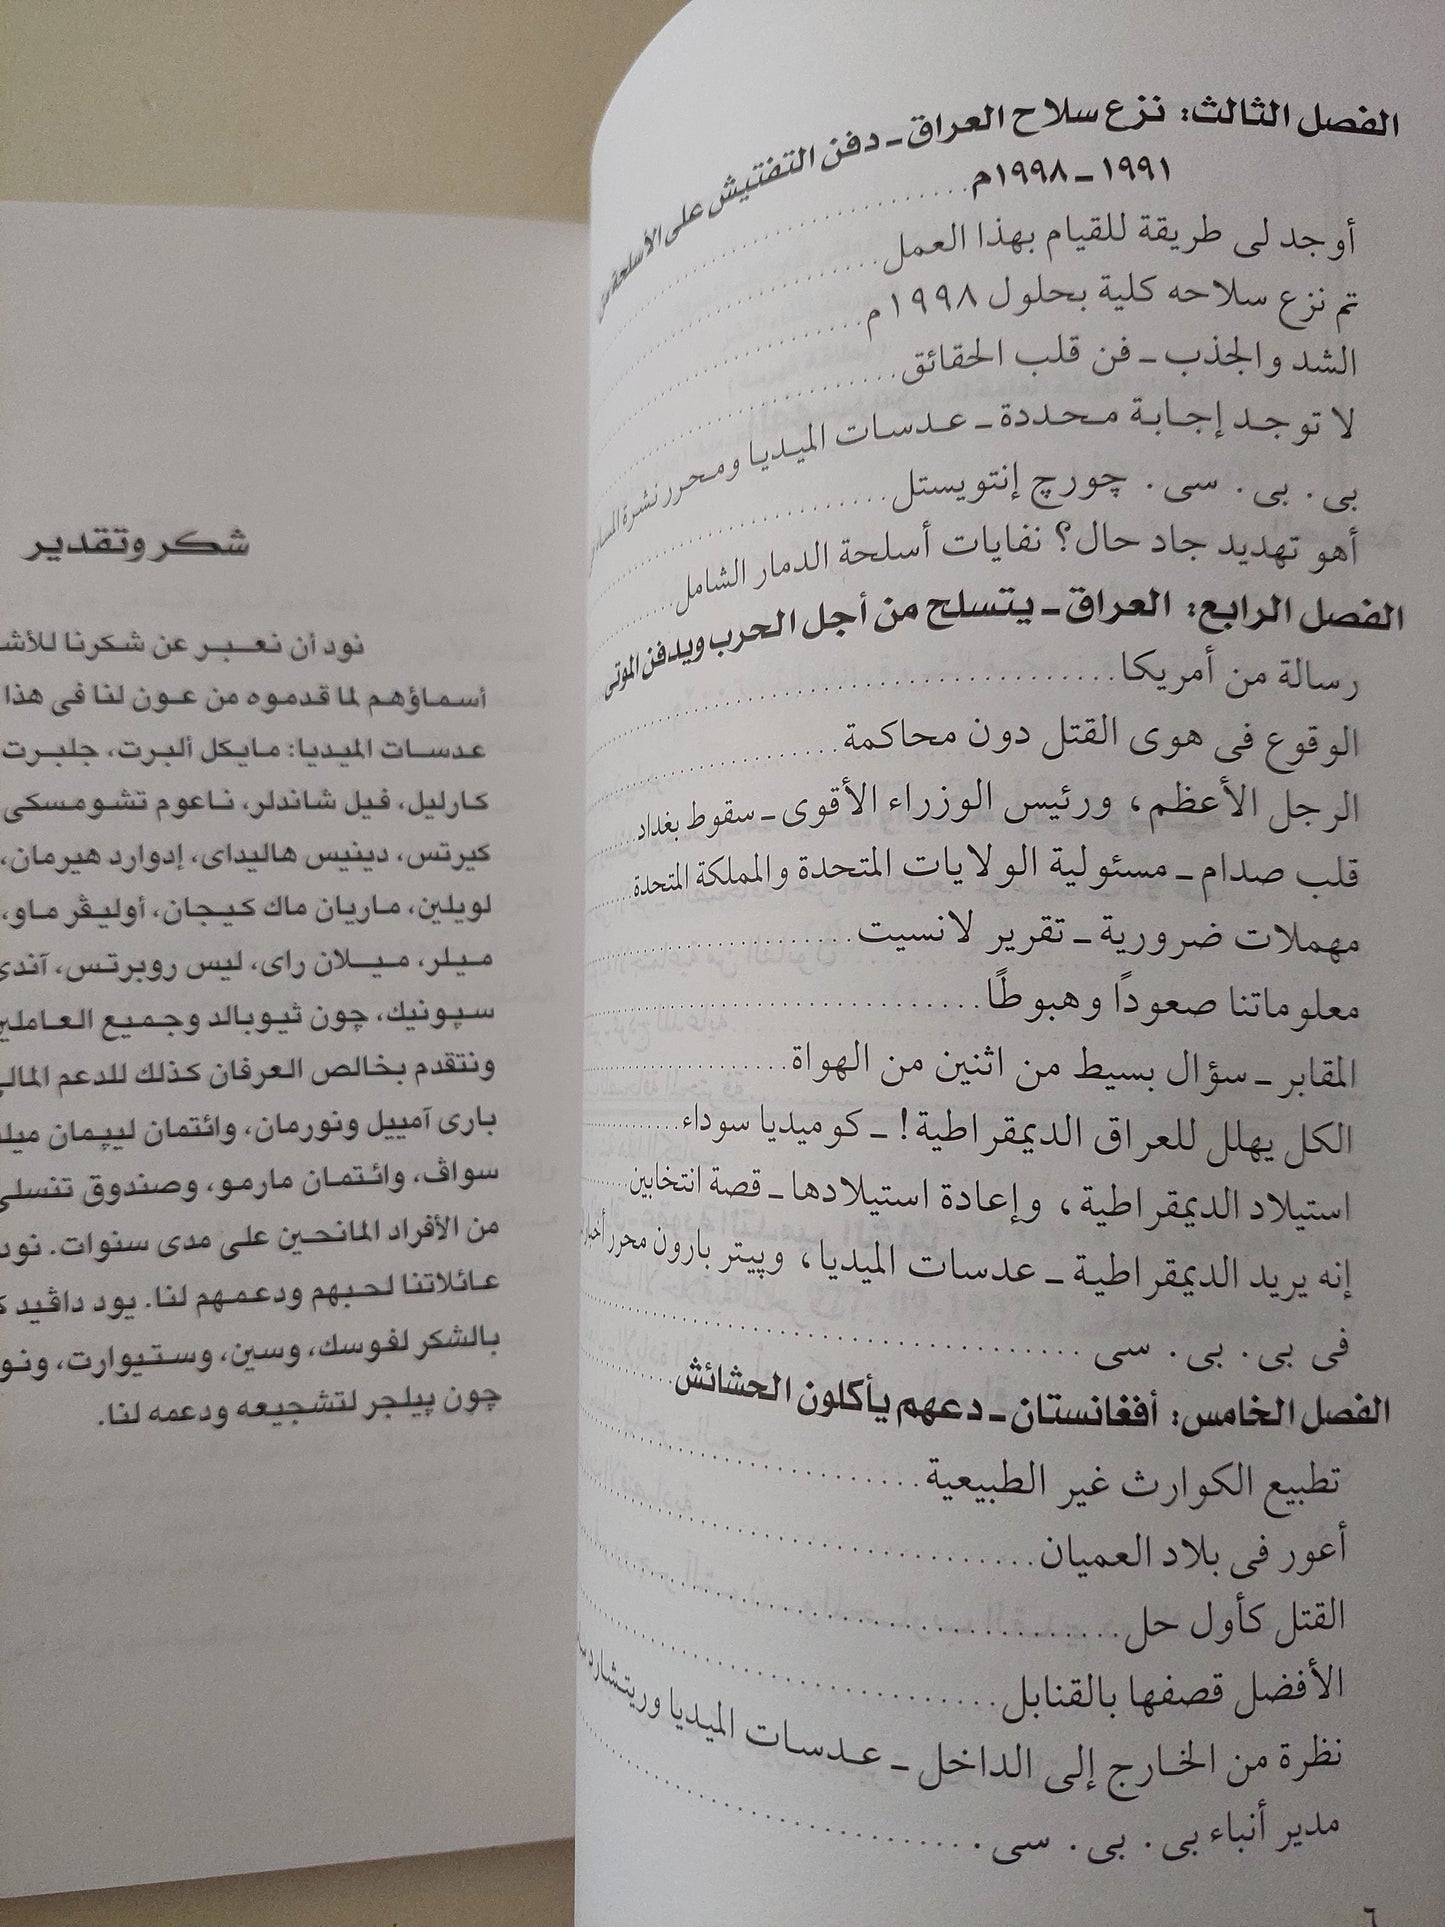 الفصل الثالث: نزع سلاح العراق ـ دفن التفتيش على الأسلحة من
١٩٩١ ـ ١٩٩٨م
أوجد لى طريقة للقيام بهذا العمل
تم نزع سلاحه كلية بحلول ١٩٩٨م
الشد والجذب ـ فن قلب الحقائق
لا توجد إجابة محددة ـ عدسات الميديا ومحرر نشرة
بى. بى. سى. چورچ إنتويستل
أهو تهديد جاد حال؟ نفايات أسلحة الدمار الشامل
الفصل الرابع: العراق ـ يتسلح من أجل الحرب ويدفن الموتى
رسالة من أمريكا
الوقوع فى هوى القتل دون محاكمة
الرجل الأعظم، ورئيس الوزراء الأقوى ـ سقوط بغداد
قلب صدام ـ مسئولية الولايات المتحدة والمملكة المتحدة
مهملات ضرورية ـ تقرير لانسيت
معلوماتنا صعودًا وهبوطًا
المقابر ـ سؤال بسيط من اثنين من الهواة
الكل يهلل للعراق الديمقراطية! ـ كوميديا سوداء
استيلاد الديمقراطية، وإعادة استيلادها ـ قصة انتخابين
إنه يريد الديمقراطية ـ عدسات الميديا، وپيتر بارون محرر
فى بى. بى. سى
الفصل الخامس: أفغانستان ـ دعهم يأكلون الحشائش
تطبيع الكوارث غير الطبيعية
أعور فى بلاد العميان
القتل كأول حل
الأفضل قصفها بالقنابل
نظرة من الخارج إلى الداخل ـ عدسات الميديا وريتشارد
مدير أنباء بى. بى. سى.
٦
شكر وتقدير
نود أن نعبر عن شكرنا
أسماؤهم لما قدموه من عون لنا فى هذا
عدسات الميديا: مايكل ألبرت، جلبرت
كارليل، فيل شاندلر، ناعوم تشومسكى
كيرتس، دينيس هاليداى، إدوارد هيرمان،
لويلين، ماريان ماك كيجان، أوليڤر ماو،
ميلر، ميلان راى، ليس روبرتس، آندى
سپونيك، چون ثيوبالد وجميع
ونتقدم بخالص العرفان كذلك للدعم
بارى آمييل ونورمان، وائتمان ليپمان
سواڤ، وائتمان مارمو، وصندوق
من الأفراد المانحين على مدى سنوات.
عائلاتنا لحبهم ودعمهم لنا. يود داڤيد
بالشكر لفوسك، وسين، وستيوارت،
چون پيلجر لتشجيعه ودعمه لنا.